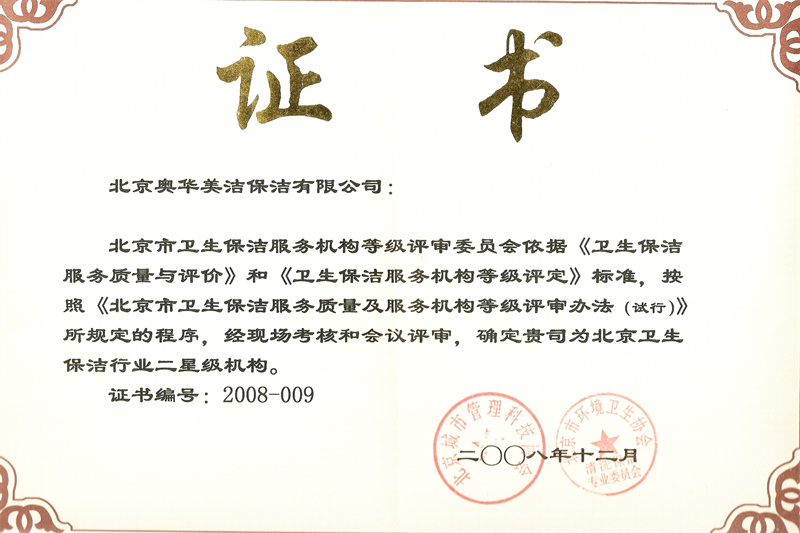 证书
北京奥华美洁保洁有限公司：
北京市卫生保洁服务机构等级评审委员会依据《卫生保洁
服务质量与评价》和《卫生保洁服务机构等级评定》标准，按
照《北京市卫生保洁服务质量及服务机构等级评审办法（试行）》
所规定的程序，经现场考核和会议评审，确定贵司为北京卫生
保洁行业二星级机构。
证书编号：2008-009
北京城市管理科技
北京市环境卫生协会
清洗保洁
专业委员会
二〇〇八年十二月